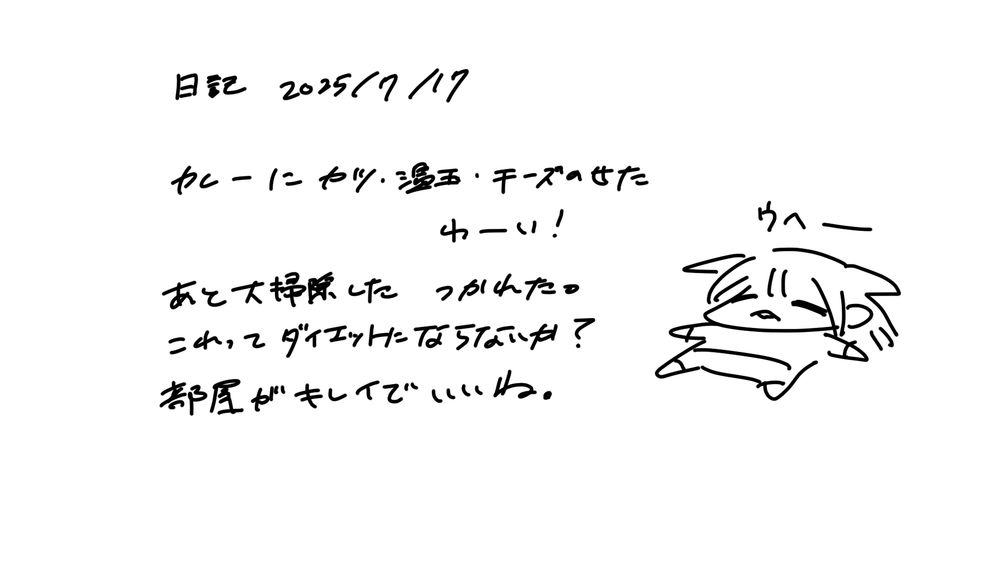 日記 2025/7/17
カレーに カツ・温玉・チーズのせた
わーい!
あと大掃除した つかれた。
これってダイエットにならないか?
部屋がキレイでいいね。
ウヘー